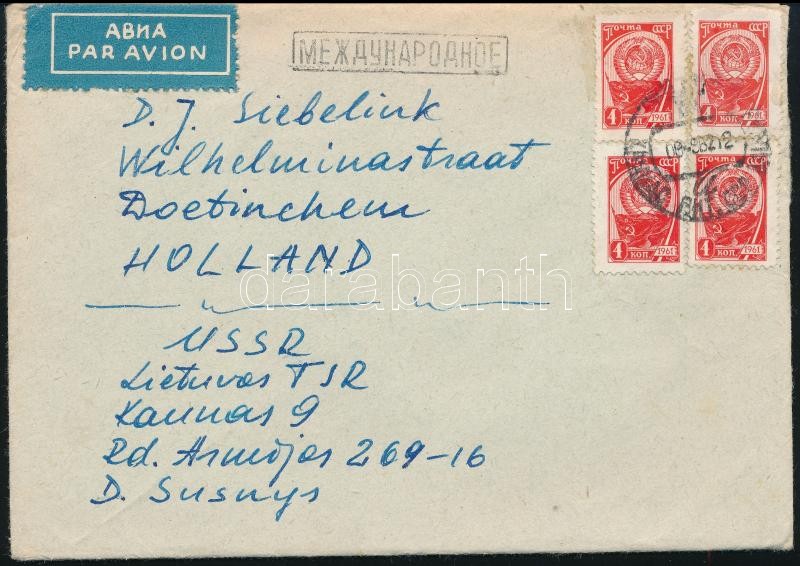 АВИА
PAR AVION
МЕЖДУНАРОДНОЕ
ПОЧТА СССР
4 КОП. 1961
ПОЧТА СССР
4 КОП. 1961
ПОЧТА СССР
4 КОП. 1961
ПОЧТА СССР
4 КОП. 1961
D. J. Siebelink
Wilhelminastraat
Doetinchem
HOLLAND
USSR
Lietuvos TSR
Kaunas 9
Rd. Armijos 269-16
D. Susnys
darabanth